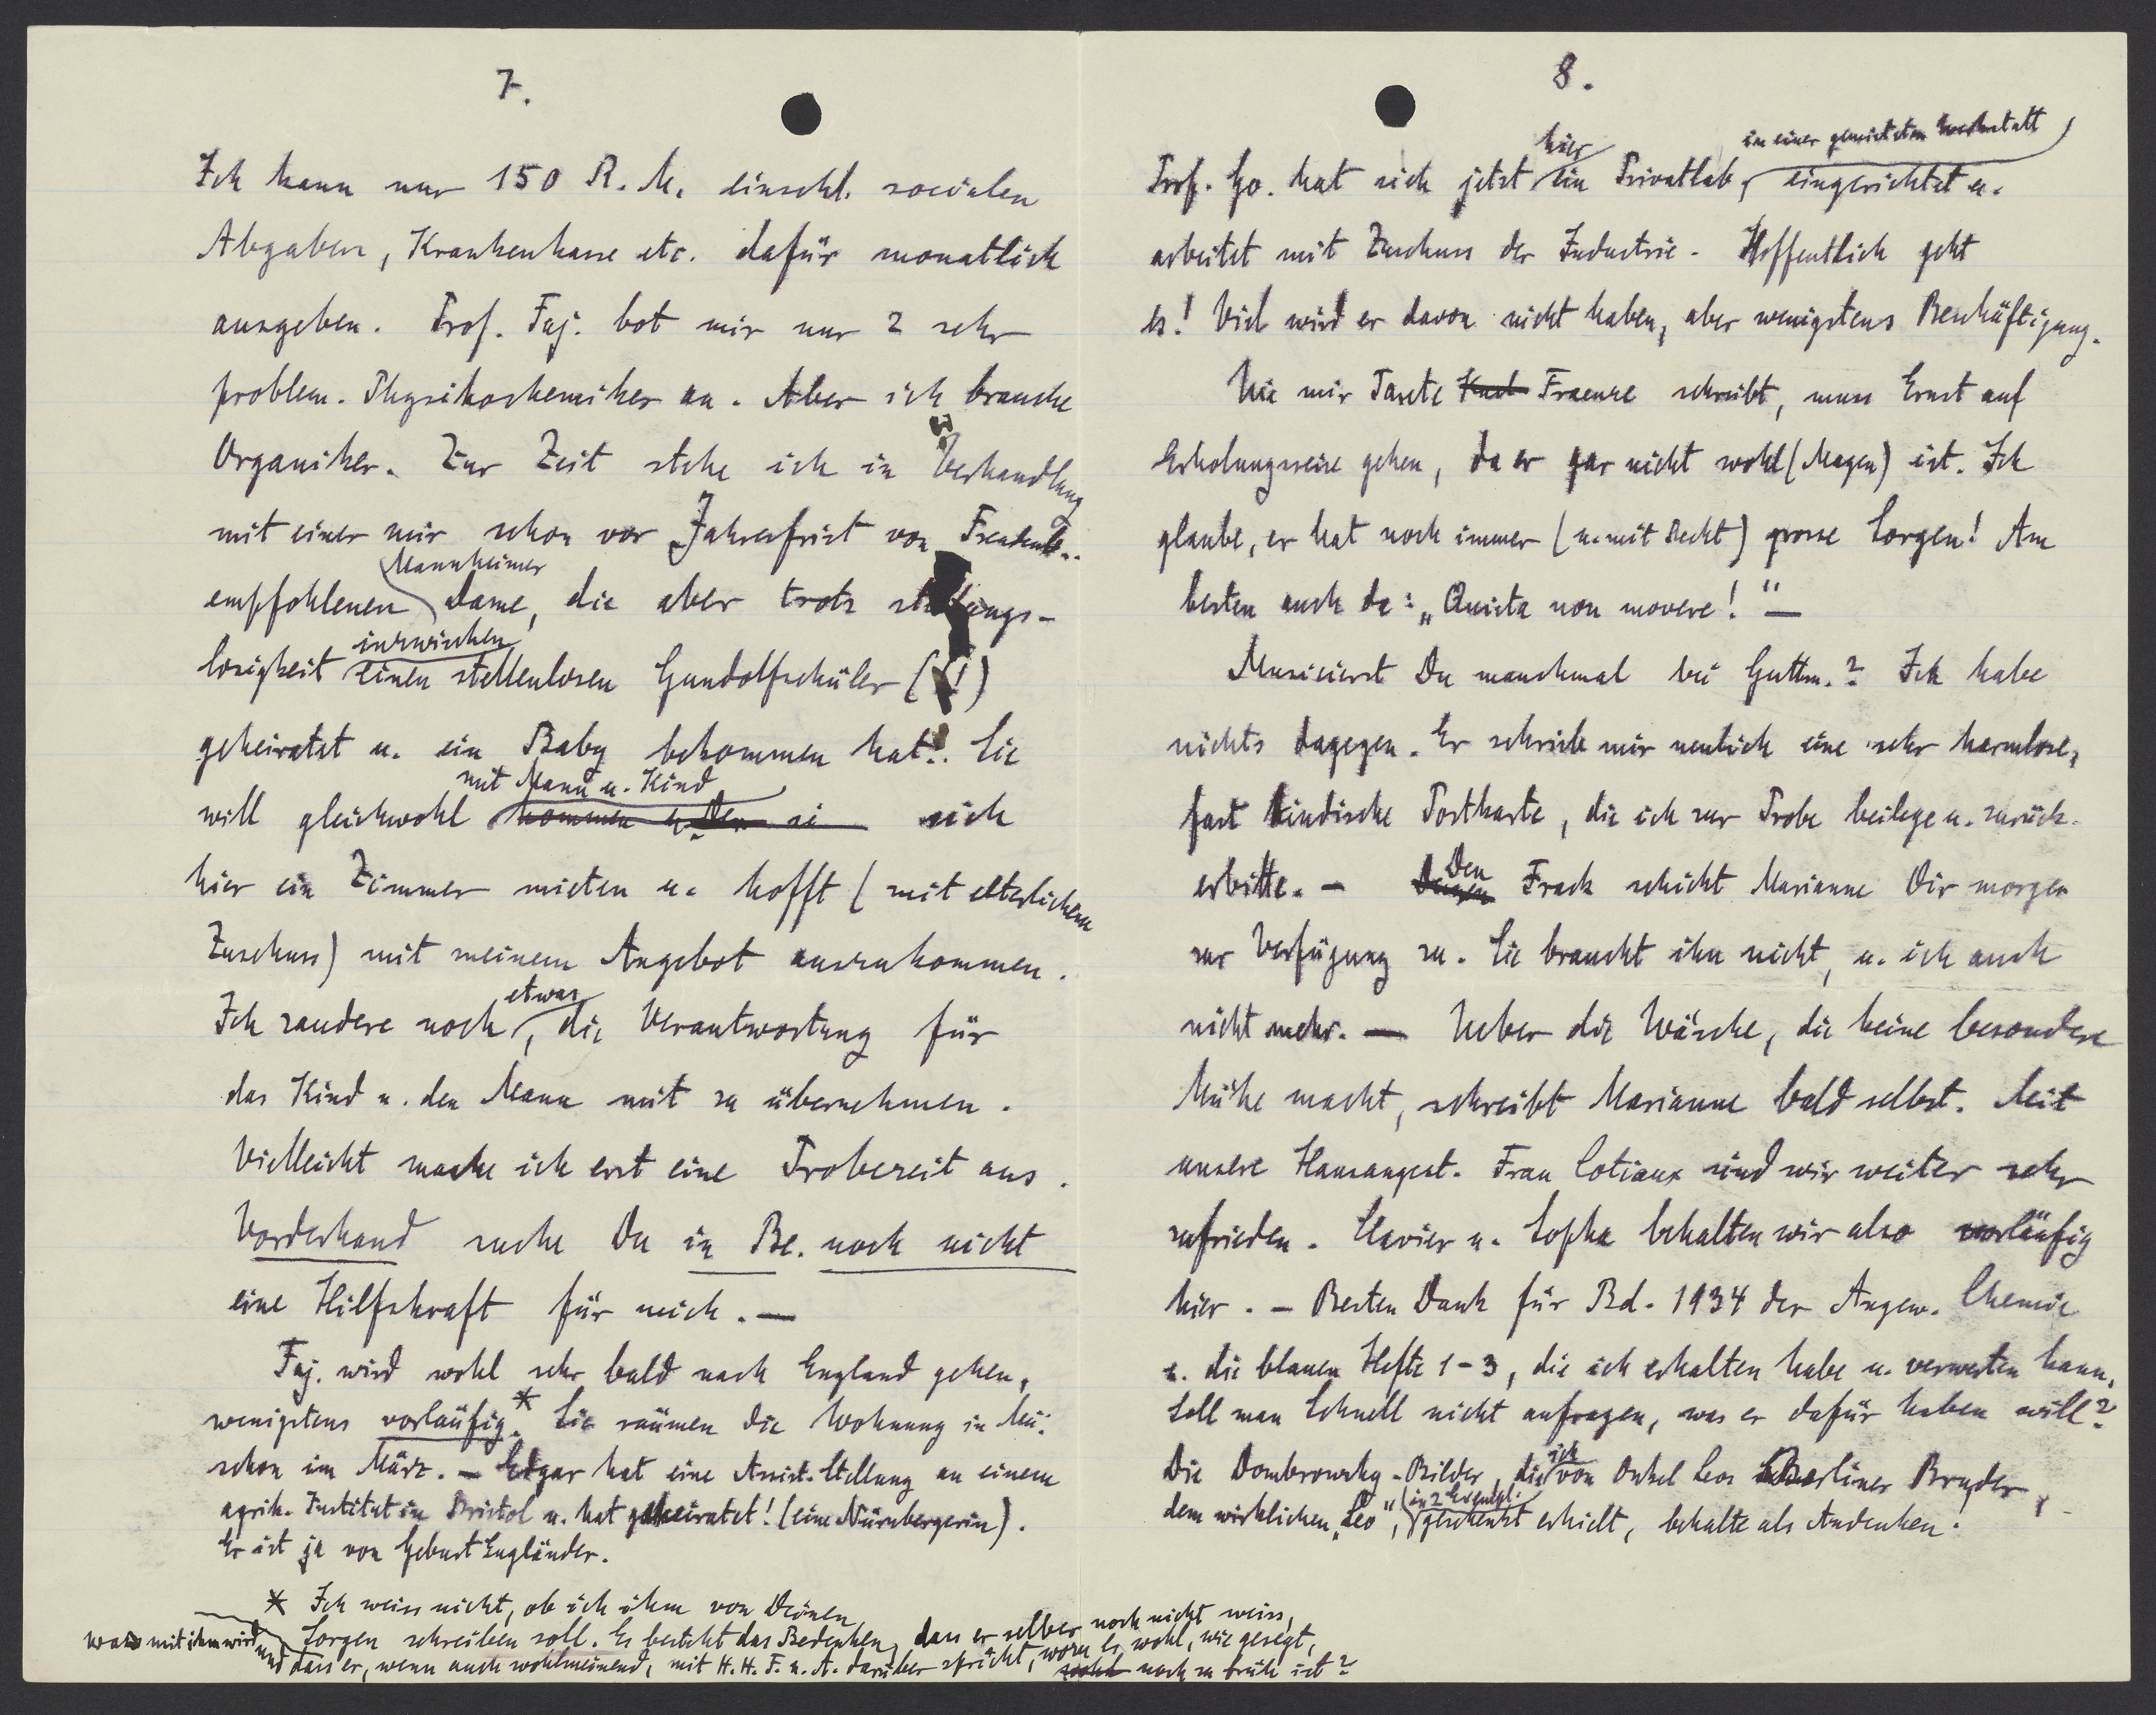 7.
Ich kann nur 150 R.M. einschl. socialen
Abgaben, Krankenkasse etc. dafür monatlich
ausgeben. Prof. Faj. bot mir nur 2 sehr
problem. Physikochemiker an. Aber ich brauche
Organiker. Zur Zeit stehe ich in Verhandlung
mit einer mir schon vor Jahresfrist von
Mannheimer
empfohlenen Dame, die aber trotz stellungs-
inzwischen
losigkeit einen stellenlosen Gundolfschüler (!)
geheiratet u. ein Baby bekommen hat!. Sie
mit Mann u. Kind
will gleichwohl kommen u. sich
hier ein Zimmer mieten u. hofft (mit elterlichem
Zuschuss) mit meinem Angebot auszukommen.
etwas
Ich zaudere noch, die Verantwortung für
das Kind u. den Mann mit zu übernehmen.
Vielleicht mache ich erst eine Probezeit aus.
Vorderhand suche Du in Be. noch nicht
eine Hilfskraft für mich. —
Faj. wird wohl sehr bald nach England gehen,
wenigstens vorläufig.* Sie räumen die Wohnung in Mü.
schon im März. — Edgar hat eine Assist.-Stellung an einem
agrik. Institut in Bristol u. hat geheiratet! (eine Nürnbergerin).
Er ist ja von Geburt Engländer.
* Ich weiss nicht, ob ich ihm von Deinen
Sorgen schreiben soll. Es besteht das Bedenken, dass er selber noch nicht weiss,
was mit ihm wird
und dass er, wenn auch wohlmeinend, mit H.H.F. u. A. darüber spricht, wozu es wohl, wie gesagt,
wohl noch zu früh ist?
8.
hier
in einer gemieteten Werkstatt
Prof. Go. hat sich jetzt ein Privatlab, eingerichtet u.
arbeitet mit Zuschuss der Industrie. Hoffentlich geht
es! Viel wird er davon nicht haben, aber wenigstens Beschäftigung.
Wie mir Taxete Fraenze schreibt, muss Ernst auf
Erholungsreise gehen, da er gar nicht wohl (Magen) ist. Ich
glaube, er hat noch immer (u. mit Recht) grosse Sorgen! Am
besten auch da: „Quieta non movere!“ —
Musicierst Du manchmal bei Guttm.? Ich habe
nichts dagegen. Er schrieb mir neulich eine sehr harmlose,
fast kindische Postkarte, die ich zur Probe beilege u. zurück-
Den
erbitte. — Frack schickt Marianne Dir morgen
zur Verfügung zu. Sie braucht ihn nicht, u. ich auch
nicht mehr. — Ueber die Wäsche, die keine besondere
Mühe macht, schreibt Marianne bald selbst. Mit
unsere Hausangest. Frau Cotiaux sind wir weiter sehr
zufrieden. Clavier u. Sopha behalten wir also vorläufig
hier. — Besten Dank für Bd. 1934 der Angew. Chemie
u. die blauen Hefte 1-3, die ich erhalten habe u. verwerten kann.
Soll man Schnell nicht anfragen, was er dafür haben will?
ich
Die Dombrowsky-Bilder, die von Onkel Leos Berliner Bruder,
in 2 Exempl.
dem wirklichen „Leo“, geschenkt erhielt, behalte als Andenken!